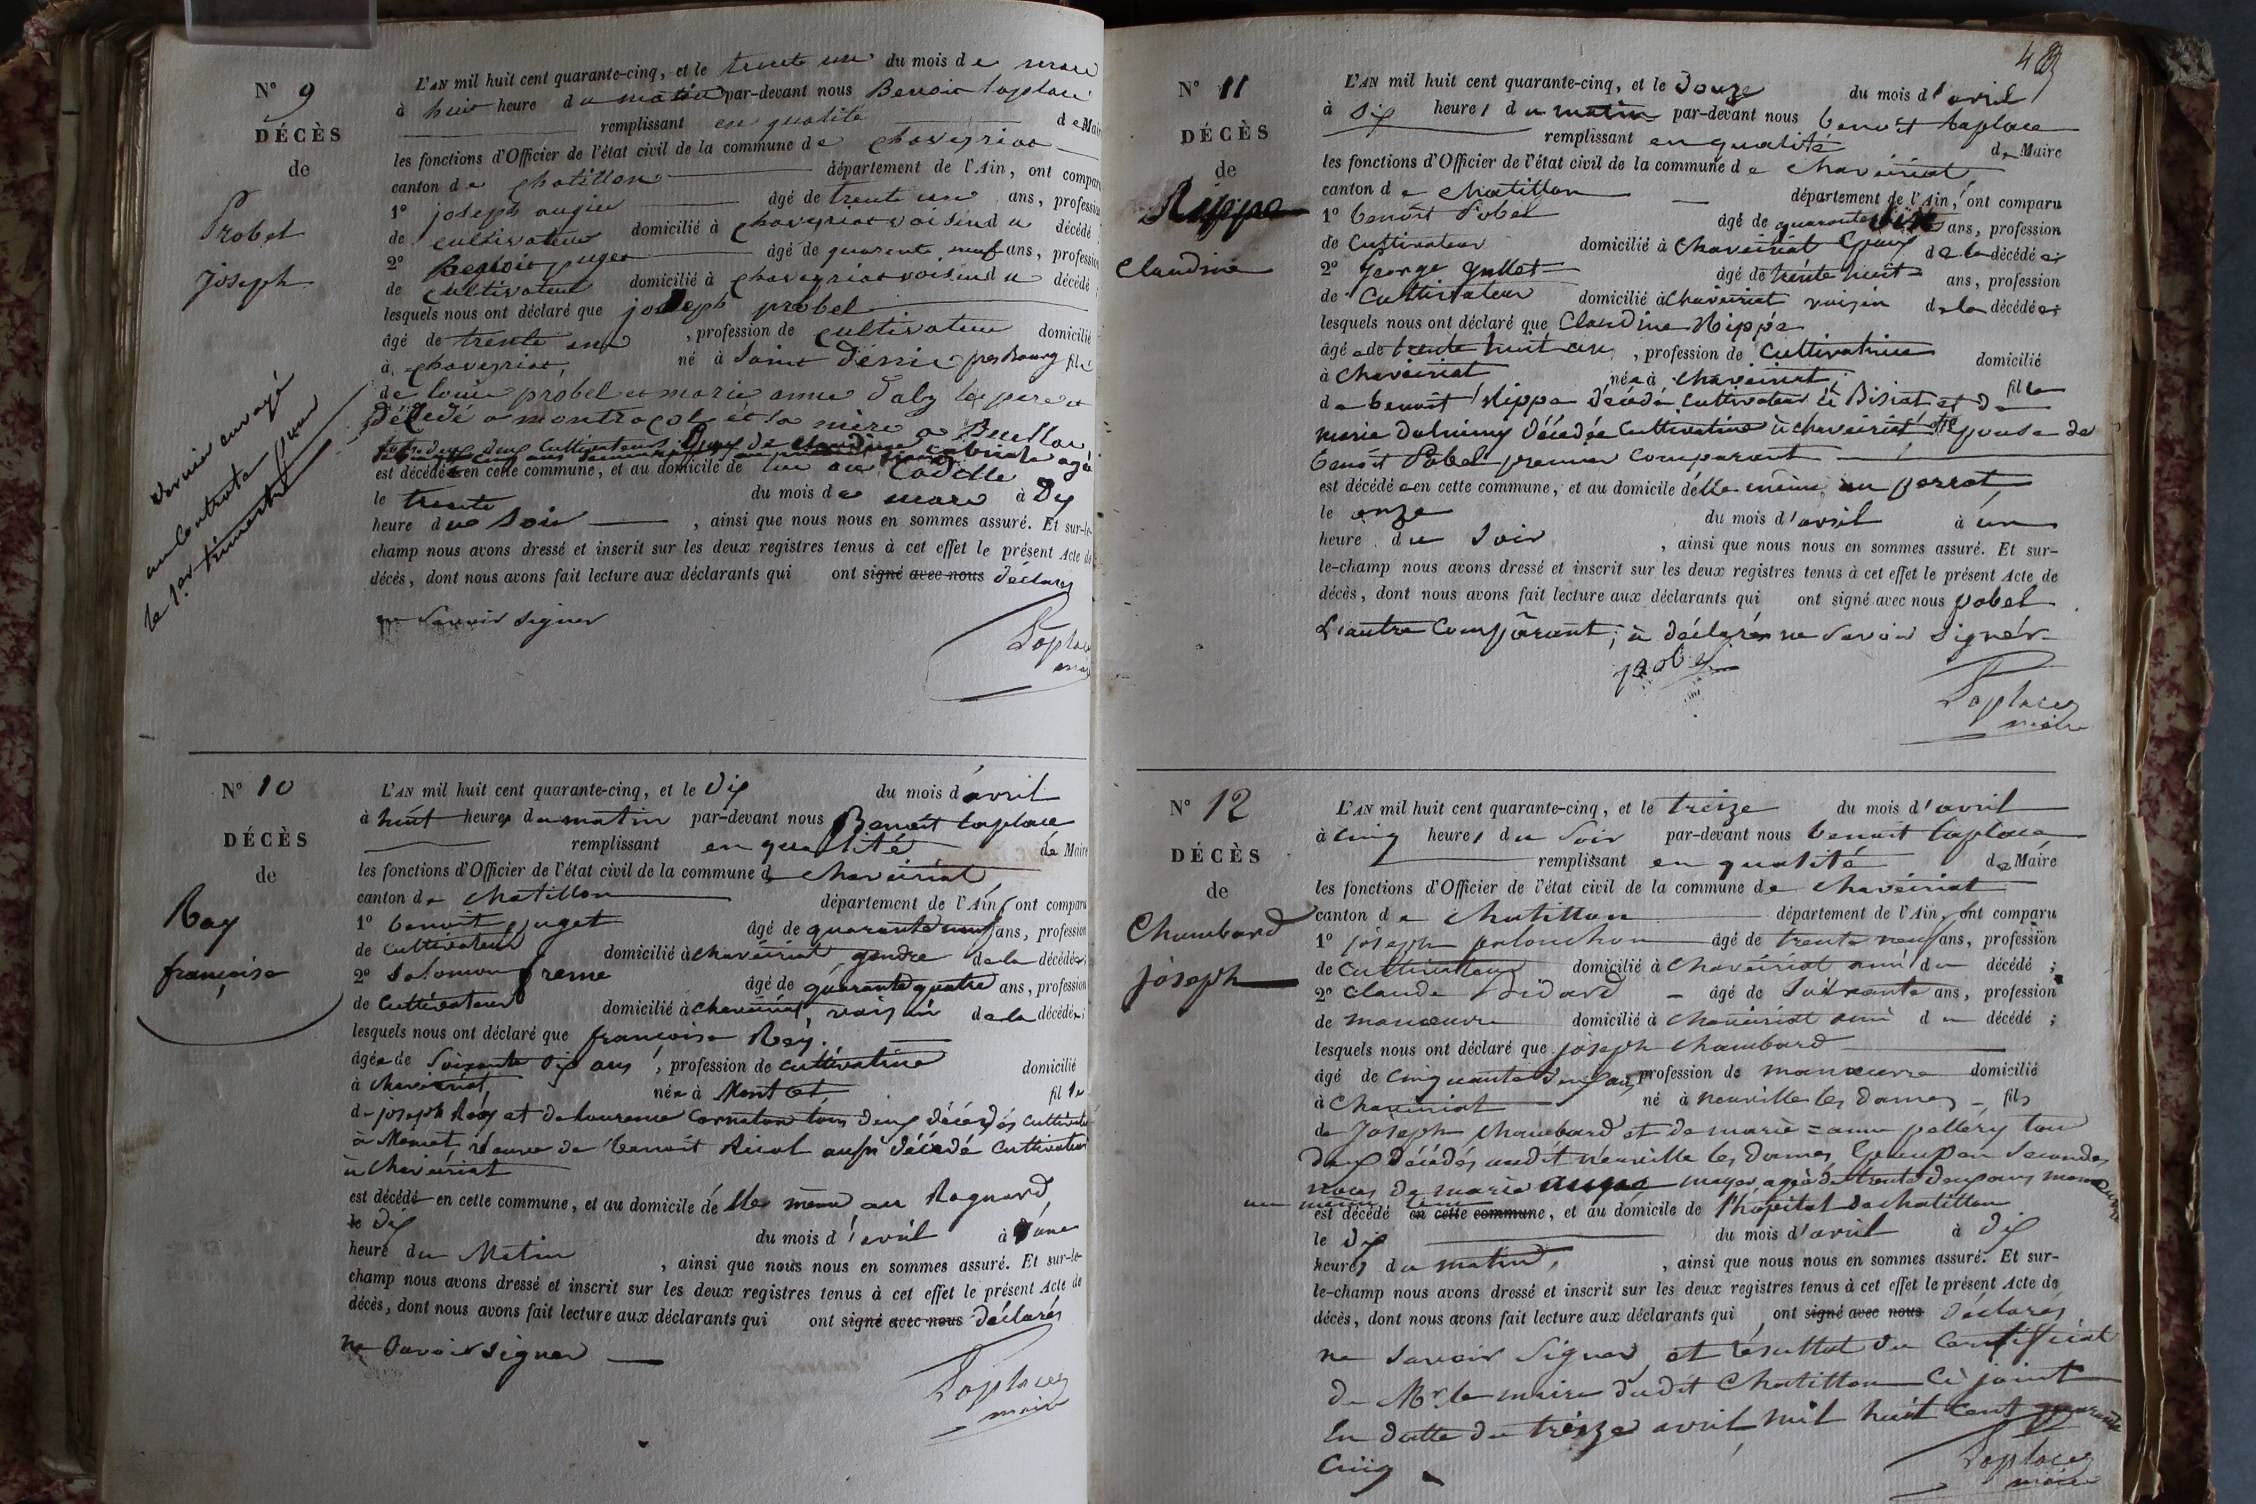 N° 9
DÉCÈS
de
Probel
joseph
dernier envoyé
au Controle pour
le 1er trimestre
L'AN mil huit cent quarante-cinq, et le trente un du mois de mars
à huit heure du matin par-devant nous Benoit laplace
remplissant en qualité de Maire
les fonctions d'Officier de l'état civil de la commune de chaveyriat
canton de chatillon département de l'Ain, ont comparu
1° joseph augier âgé de trente un ans, profession
de cultivateur domicilié à chaveyriat voisin du décédé
2° Benoit puget âgé de quarante neuf ans, profession
de cultivateur domicilié à chaveyriat voisin du décédé ;
lesquels nous ont déclaré que joseph probel
âgé de trente , profession de cultivateur domicilié
à chaveyriat, né à Saint dénis pres Bourg fils
de louis probel et marie anne daly le pere
décédé a montracol et la mère a Buellas
est décédé en cette commune, et au domicile de
le trente du mois de mars à dix
heure du soir , ainsi que nous nous en sommes assuré. Et sur-le-
champ nous avons dressé et inscrit sur les deux registres tenus à cet effet le présent Acte de
décès, dont nous avons fait lecture aux déclarants qui ont signé avec nous déclarés
ne Savoir signer
Laplace
maire
N° 10
DÉCÈS
de
Ray
françoise
L'AN mil huit cent quarante-cinq, et le dix du mois d'avril
à huit heures du matin par-devant nous Benoit laplace
remplissant en qualité de Maire
les fonctions d'Officier de l'état civil de la commune de chavéiriat
canton de chatillon département de l'Ain, ont comparu
1° benoit puget âgé de quarante neuf ans, profession
de cultivateur domicilié à chavéiriat gendre de la décédée ;
2° Salomon freme âgé de quarante quatre ans, profession
de cultivateur domicilié à chavéiriat, voisin de la décédée ;
lesquels nous ont déclaré que françoise Ray.
âgée de soixante dix ans , profession de cultivatrice domicilié
à chavéiriat, née à Montcet fille
de joseph Ray et de laurence Cornaton tous deux décédés cultivateurs
à Montcet, veuve de benoit Rivol aussi décédé cultivateur
à chavéiriat
est décédé en cette commune, et au domicile d'elle même au Raguard
le dix du mois d'avril à une
heure du Matin , ainsi que nous nous en sommes assuré. Et sur-le-
champ nous avons dressé et inscrit sur les deux registres tenus à cet effet le présent Acte de
décès, dont nous avons fait lecture aux déclarants qui ont signé avec nous déclarés
ne Savoir signer
Laplace
maire
N° 11
DÉCÈS
de
Rippe
Claudine
L'AN mil huit cent quarante-cinq, et le douze du mois d'avril
à dix heures du matin par-devant nous benoit laplace
remplissant en qualité de Maire
les fonctions d'Officier de l'état civil de la commune de chavéiriat
canton de chatillon département de l'Ain, ont comparu
1° benoit Pobel âgé de quarante ans, profession
de Cultivateur domicilié à chavéiriat Epoux de la décédée ;
2° George gullet âgé de trente huit ans, profession
de Cultivateur domicilié à chavéiriat voisin de la décédée ;
lesquels nous ont déclaré que Claudine Rippe
âgée de trente huit ans , profession de Cultivatrice domicilié
à Chavéiriat née à chavéiriat ; fille
de benoit Rippe décédé cultivateur à Bisiat et de
marie décédée Cultivatrice à chavéiriat Epouse de
benoit Pobel premier Comparant
est décédée en cette commune, et au domicile d'elle même, au perrat
le onze du mois d'avril à un
heure du Soir , ainsi que nous nous en sommes assuré. Et sur-
le-champ nous avons dressé et inscrit sur les deux registres tenus à cet effet le présent Acte de
décès, dont nous avons fait lecture aux déclarants qui ont signé avec nous pobel
L'autre Comparant, à déclaré ne Savoir Signér
pobel
Laplace
maire
N° 12
DÉCÈS
de
Chambard
joseph
L'AN mil huit cent quarante-cinq, et le treize du mois d'avril
à cinq heures du Soir par-devant nous benoit laplace
remplissant en qualité de Maire
les fonctions d'Officier de l'état civil de la commune de chavéiriat
canton de chatillon département de l'Ain, ont comparu
1° joseph polonchon âgé de trente neuf ans, profession
de cultivateur domicilié à chavéiriat ami du décédé ;
2° Claude Didard âgé de soixante ans, profession
de manœuvre domicilié à chavéiriat ami du décédé ;
lesquels nous ont déclaré que joseph Chambard
âgé de cinquante deux ans, profession de manœuvre domicilié
à Chavéiriat né à neuville les dames fils
de Joseph Chambard et de marie = anne pelléry tous
deux décédés audit neuville les dames, Epoux en secondes
noces de marie moyer agée de trente deux ans manœuvre
est décédé en cette commune, et au domicile de l'hôpital de chatillon
le dix du mois d'avril à dix
heures du matin, , ainsi que nous nous en sommes assuré. Et sur-
le-champ nous avons dressé et inscrit sur les deux registres tenus à cet effet le présent Acte de
décès, dont nous avons fait lecture aux déclarants qui ont signé avec nous déclarés
ne savoir Signer, et résultat du Certificat
de Mr le maire dudit Chatillon Ci joint
En datte du treize avril mil huit cent quarante
Cinq
Laplace
maire